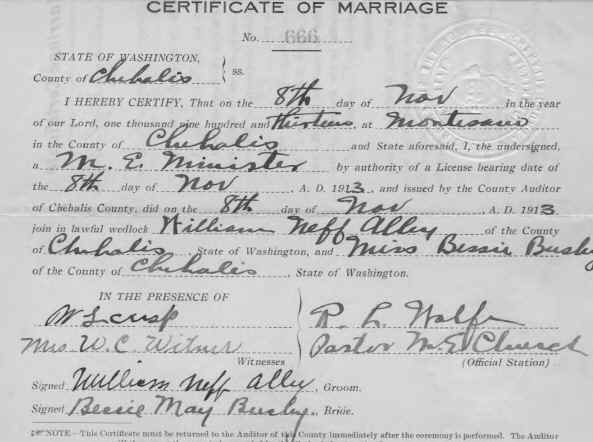 CERTIFICATE OF MARRIAGE
No. 666
STATE OF WASHINGTON,
County of Chehalis } ss.
I HEREBY CERTIFY, That on the 8th day of Nov in the year
of our Lord, one thousand nine hundred and thirteen, at Montesano
in the County of Chehalis and State aforesaid, I, the undersigned,
a M. E. Minister by authority of a License bearing date of
the 8th day of Nov, A. D. 1913, and issued by the County Auditor
of Chehalis County, did on the 8th day of Nov, A. D. 1913
join in lawful wedlock William Neff Alley of the County
of Chehalis, State of Washington, and Miss Bessie Busby
of the County of Chehalis, State of Washington.
IN THE PRESENCE OF
W L Crisp
Mrs. W. C. Witner
Witnesses
R. L. Wolfe
Pastor M E Church
(Official Station)
Signed William Neff Alley, Groom.
Signed Bessie May Busby, Bride.
NOTE—This Certificate must be returned to the Auditor of this County immediately after the ceremony is performed. The Auditor